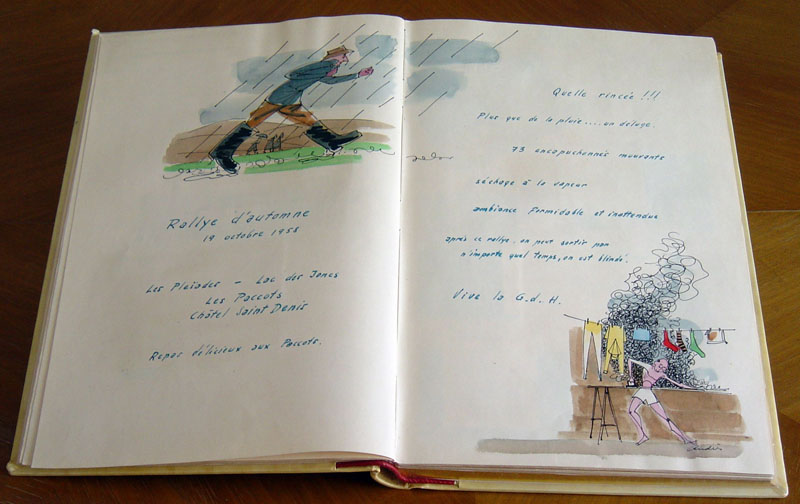 Rallye d'automne
19 octobre 1958
Les Pleiades - Lac des Joncs
Les Paccots
Châtel Saint Denis
Repas délicieux aux Paccots.
Quelle rincée !!!
Plus que de la pluie.... un déluge.
73 encapuchonnés mouvants
séchage à la vapeur
ambiance formidable et inattendue
après ce rallye, on peut sortir par
n'importe quel temps, on est blindé.
Vive la G.d.H.